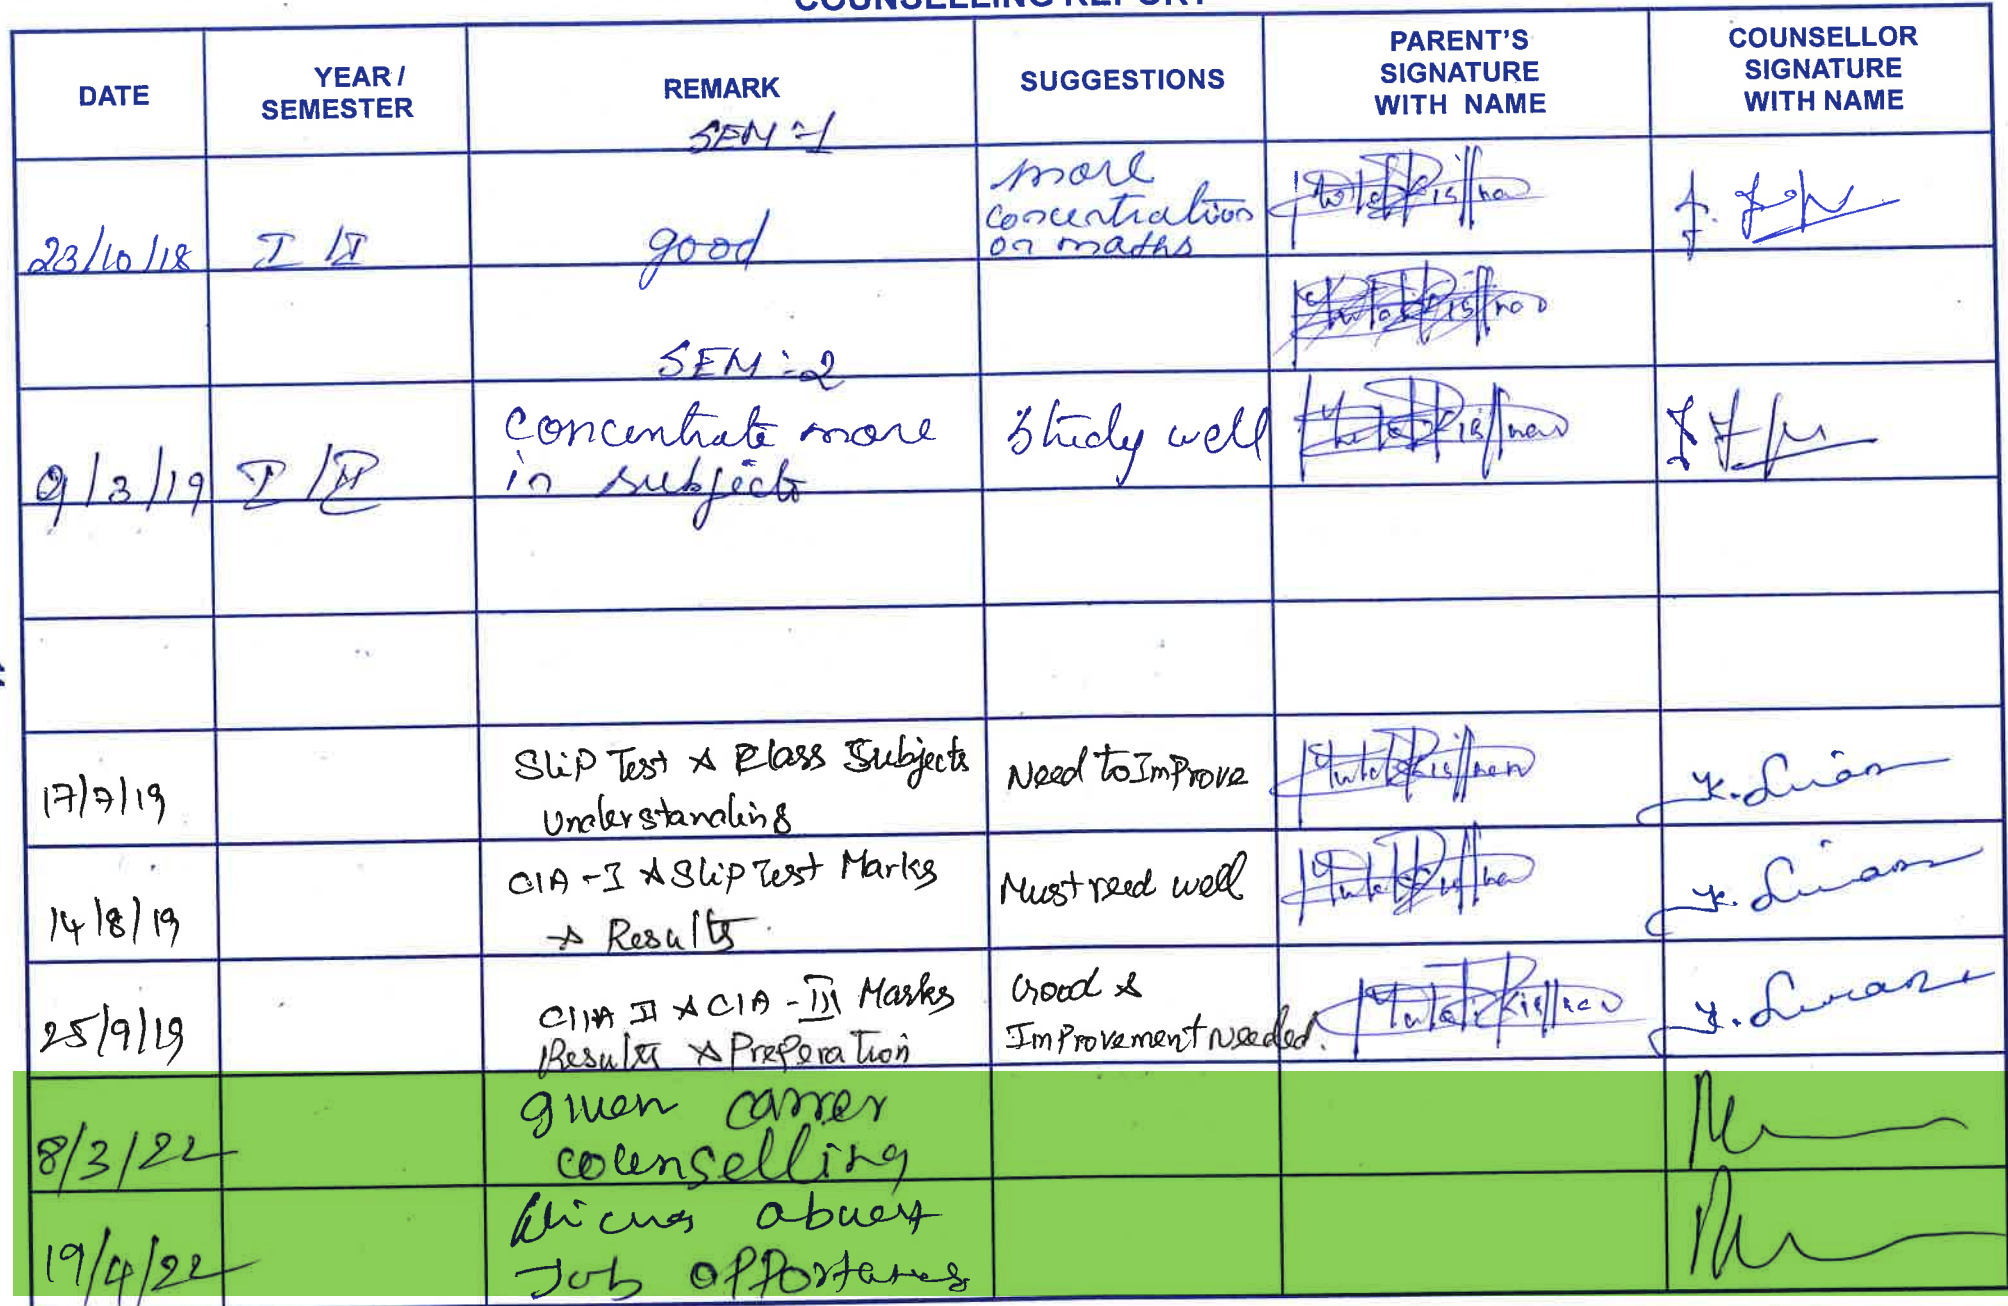 COUNSELLING REPORT
DATE
YEAR /
SEMESTER
REMARK
SUGGESTIONS
PARENT'S
SIGNATURE
WITH NAME
COUNSELLOR
SIGNATURE
WITH NAME
SEM :-1
23/10/18
I /I
good
more
concentration
on maths
SEM :-2
9/3/19
I /II
Concentrate more
in subjects
Study well
17/7/19
Slip Test & Class Subjects
Understanding
Need to Improve
14/8/19
CIA -I & Slip Test Marks
& Results.
Must read well
25/9/19
CIA II & CIA - III Marks
Results & Preperation
Good &
Improvement Needed.
8/3/22
given carrer
counselling
19/4/22
Job